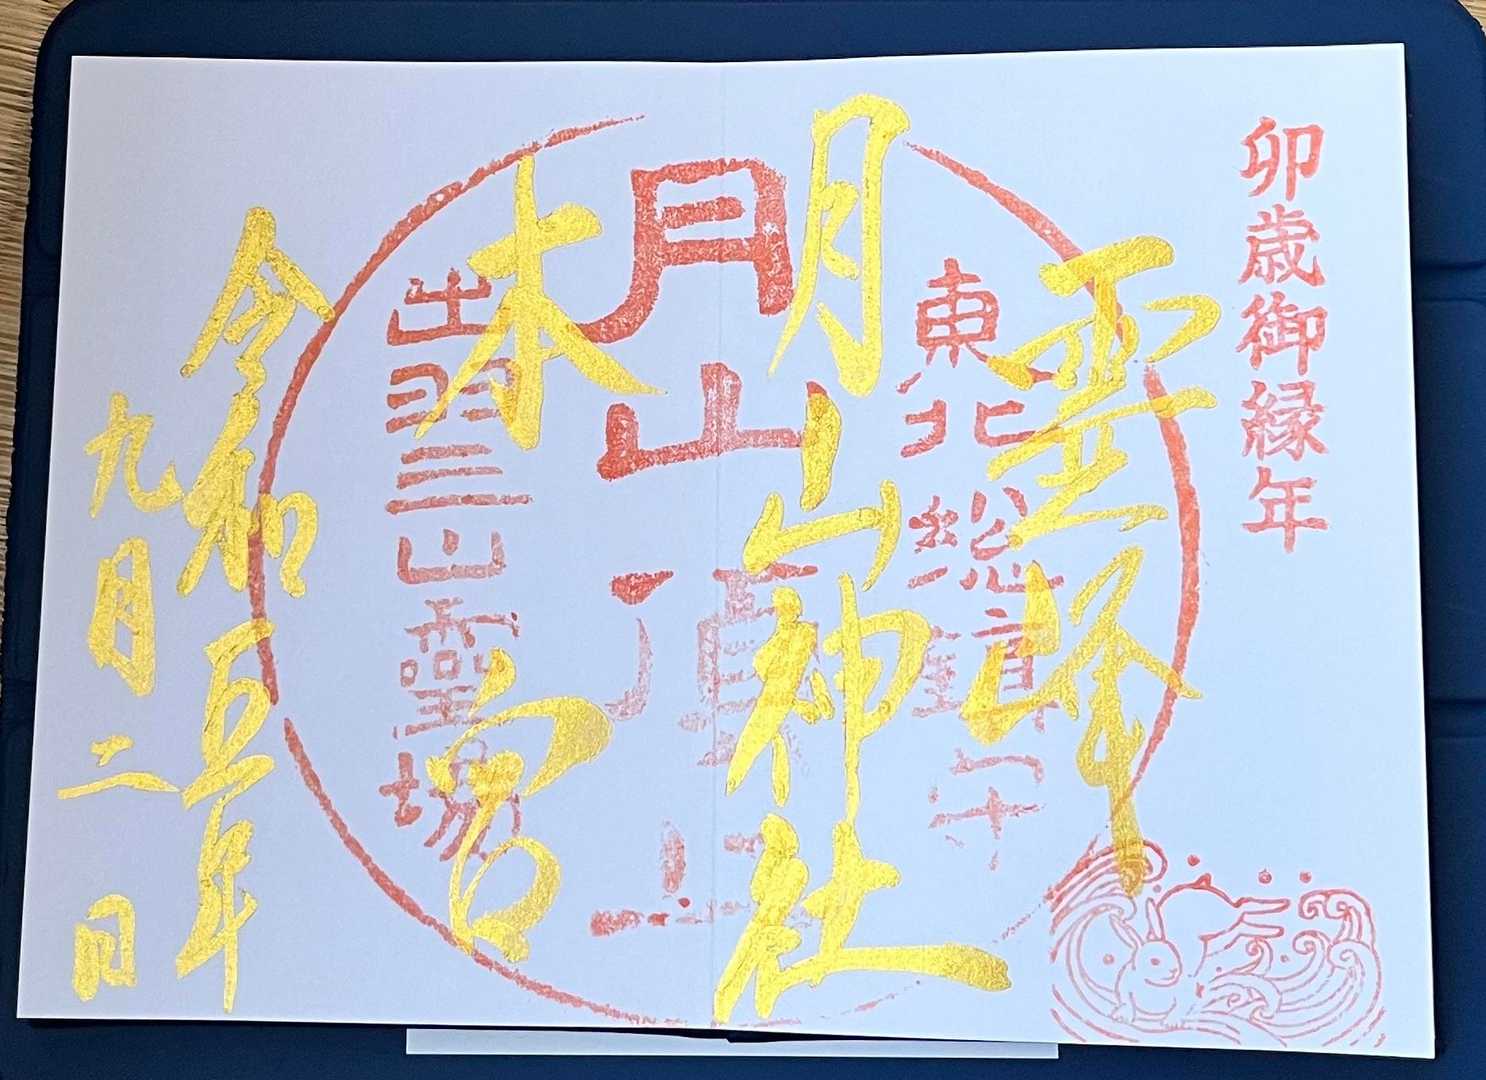 卯歳御縁年
霊峰
東北総鎮守
月山神社
月山頂上
本宮
出羽三山霊場
令和五年
九月二日